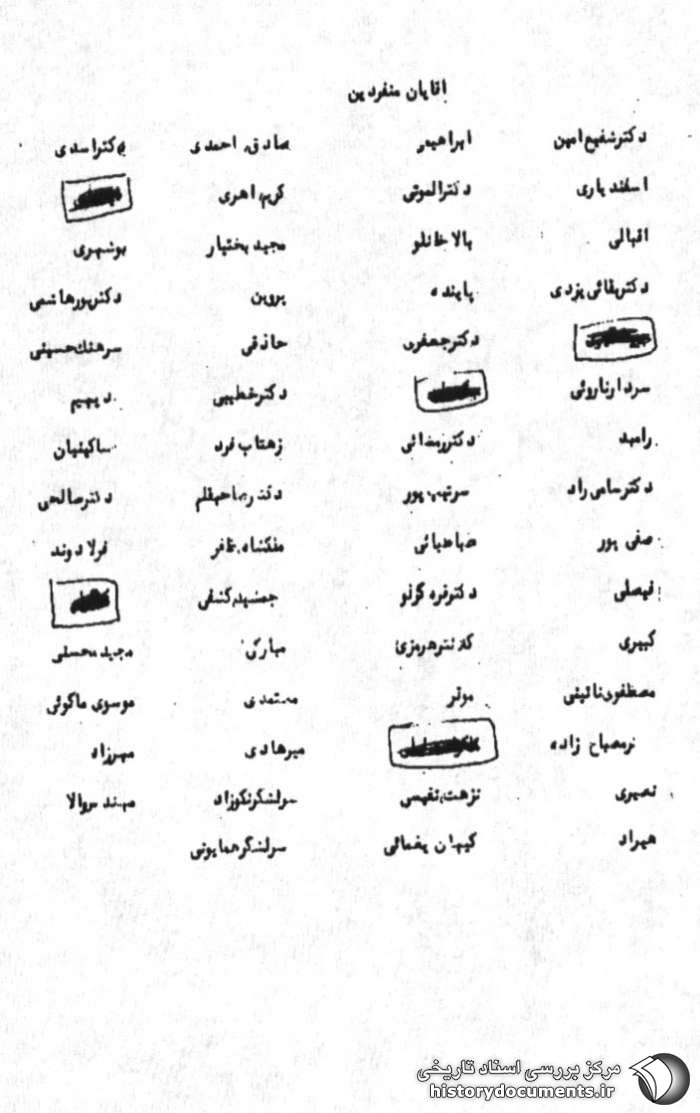 اقایان منفردین
دکترشفیع امین ابراهیمی صادق احمدی دکتراسدی
اسفندیاری دکترالموتی کریم اهری
اقبالی بالاخانلو مجید بختیار بوشهری
دکتربقائی یزدی پاینده پروین دکترپورهاشمی
دکترجعفری حاذقی سرهنگ حسینی
سردارناروئی دکترخطیبی دیهیم
رامبد دکتررمضانی زهتاب فرد ساکینیان
دکترسامی راد سرتیپ پور دکترصالحی
صفی پور ضیاءضیائی ملکشاه ظفر فولادوند
فیصلی دکترقره گزلو جمشید کشفی
کبیری کلانترهرمزی مبارکی مجید محسنی
مصطفوی نائینی موقر معتمدی موسوی ماکوئی
نرمصباح زاده میرهادی مهرزاد
نصیری نزهت نفیسی سرلشگرنکوزاد مهندس والا
هیراد کیهان یغمائی سرلشگرهمایونی
مرکز بررسی اسناد تاریخی
historydocuments.ir